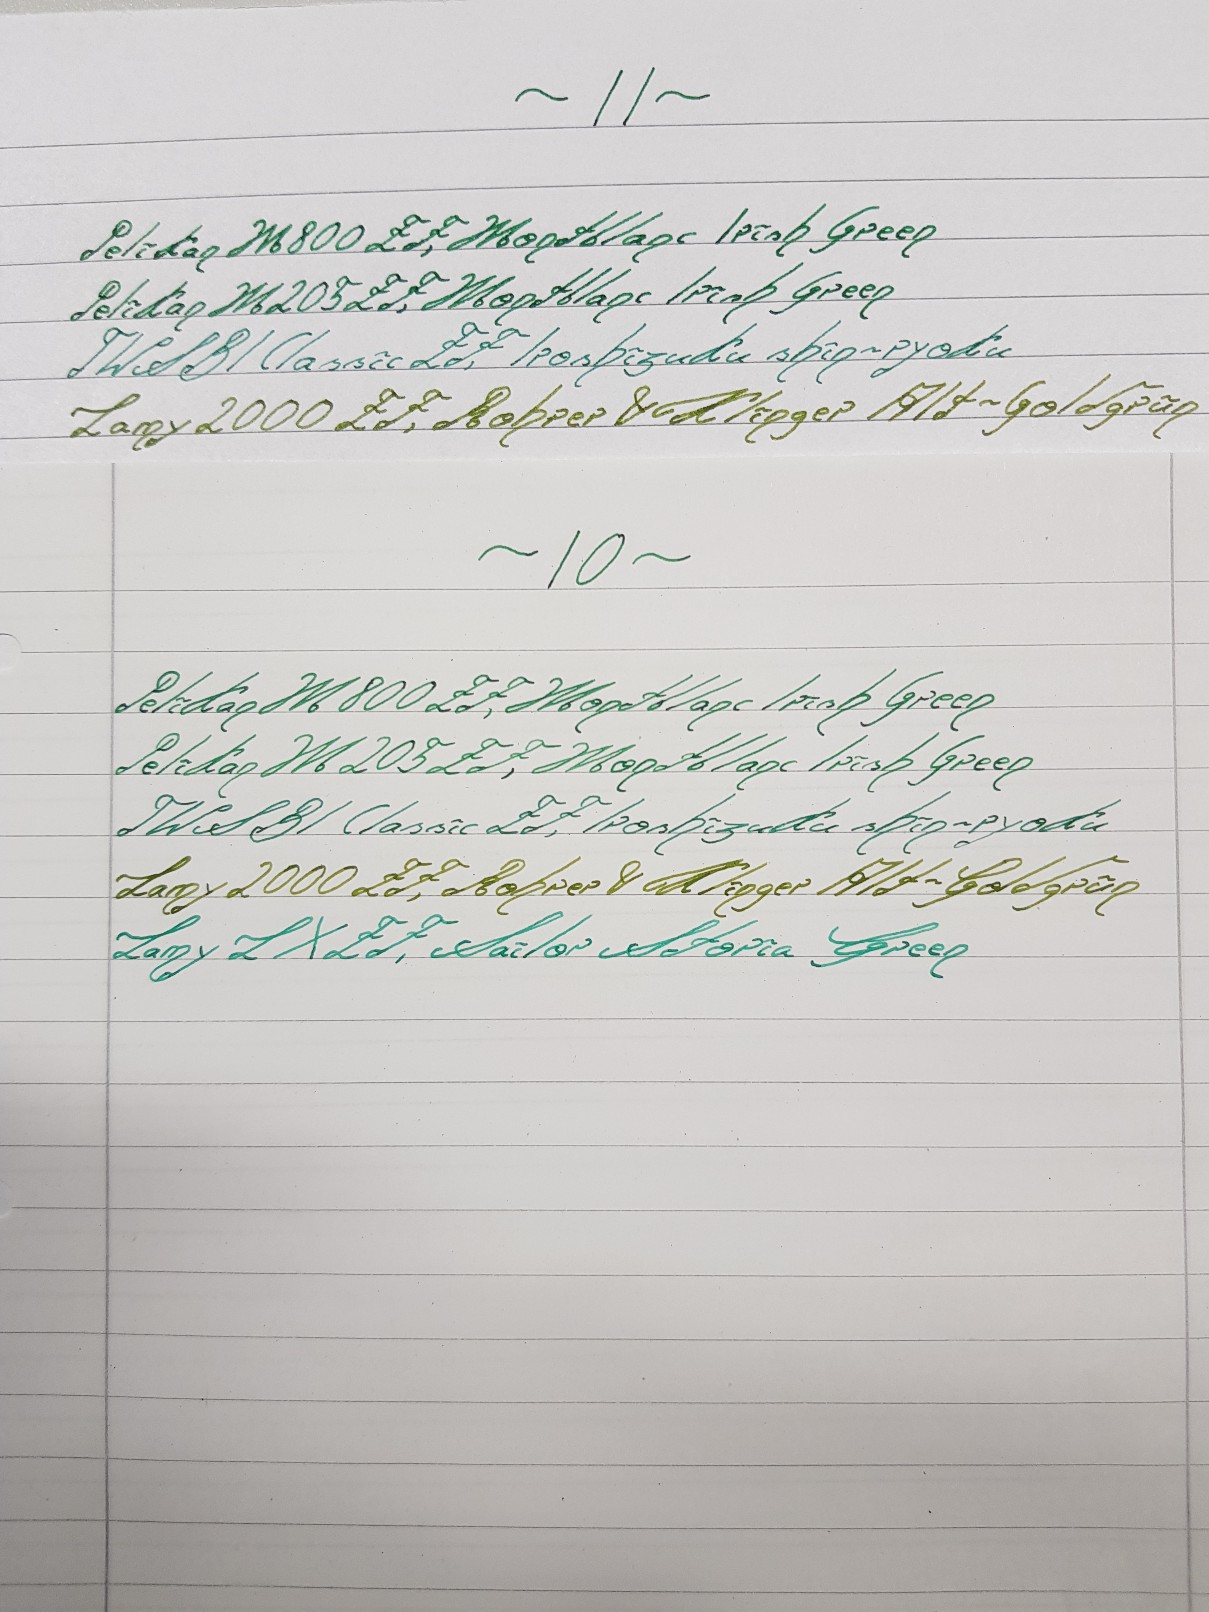 ~ 11 ~
Pelikan M800 EF, Montblanc Irish Green
Pelikan M205 EF, Montblanc Irish Green
TWSBI Classic EF, Iroshizuku shin-ryoku
Lamy 2000 EF, Rohrer & Klinger Alt-Goldgrün
~ 10 ~
Pelikan M800 EF, Montblanc Irish Green
Pelikan M205 EF, Montblanc Irish Green
TWSBI Classic EF, Iroshizuku shin-ryoku
Lamy 2000 EF, Rohrer & Klinger Alt-Goldgrün
Lamy LX EF, Sailor Storia Green